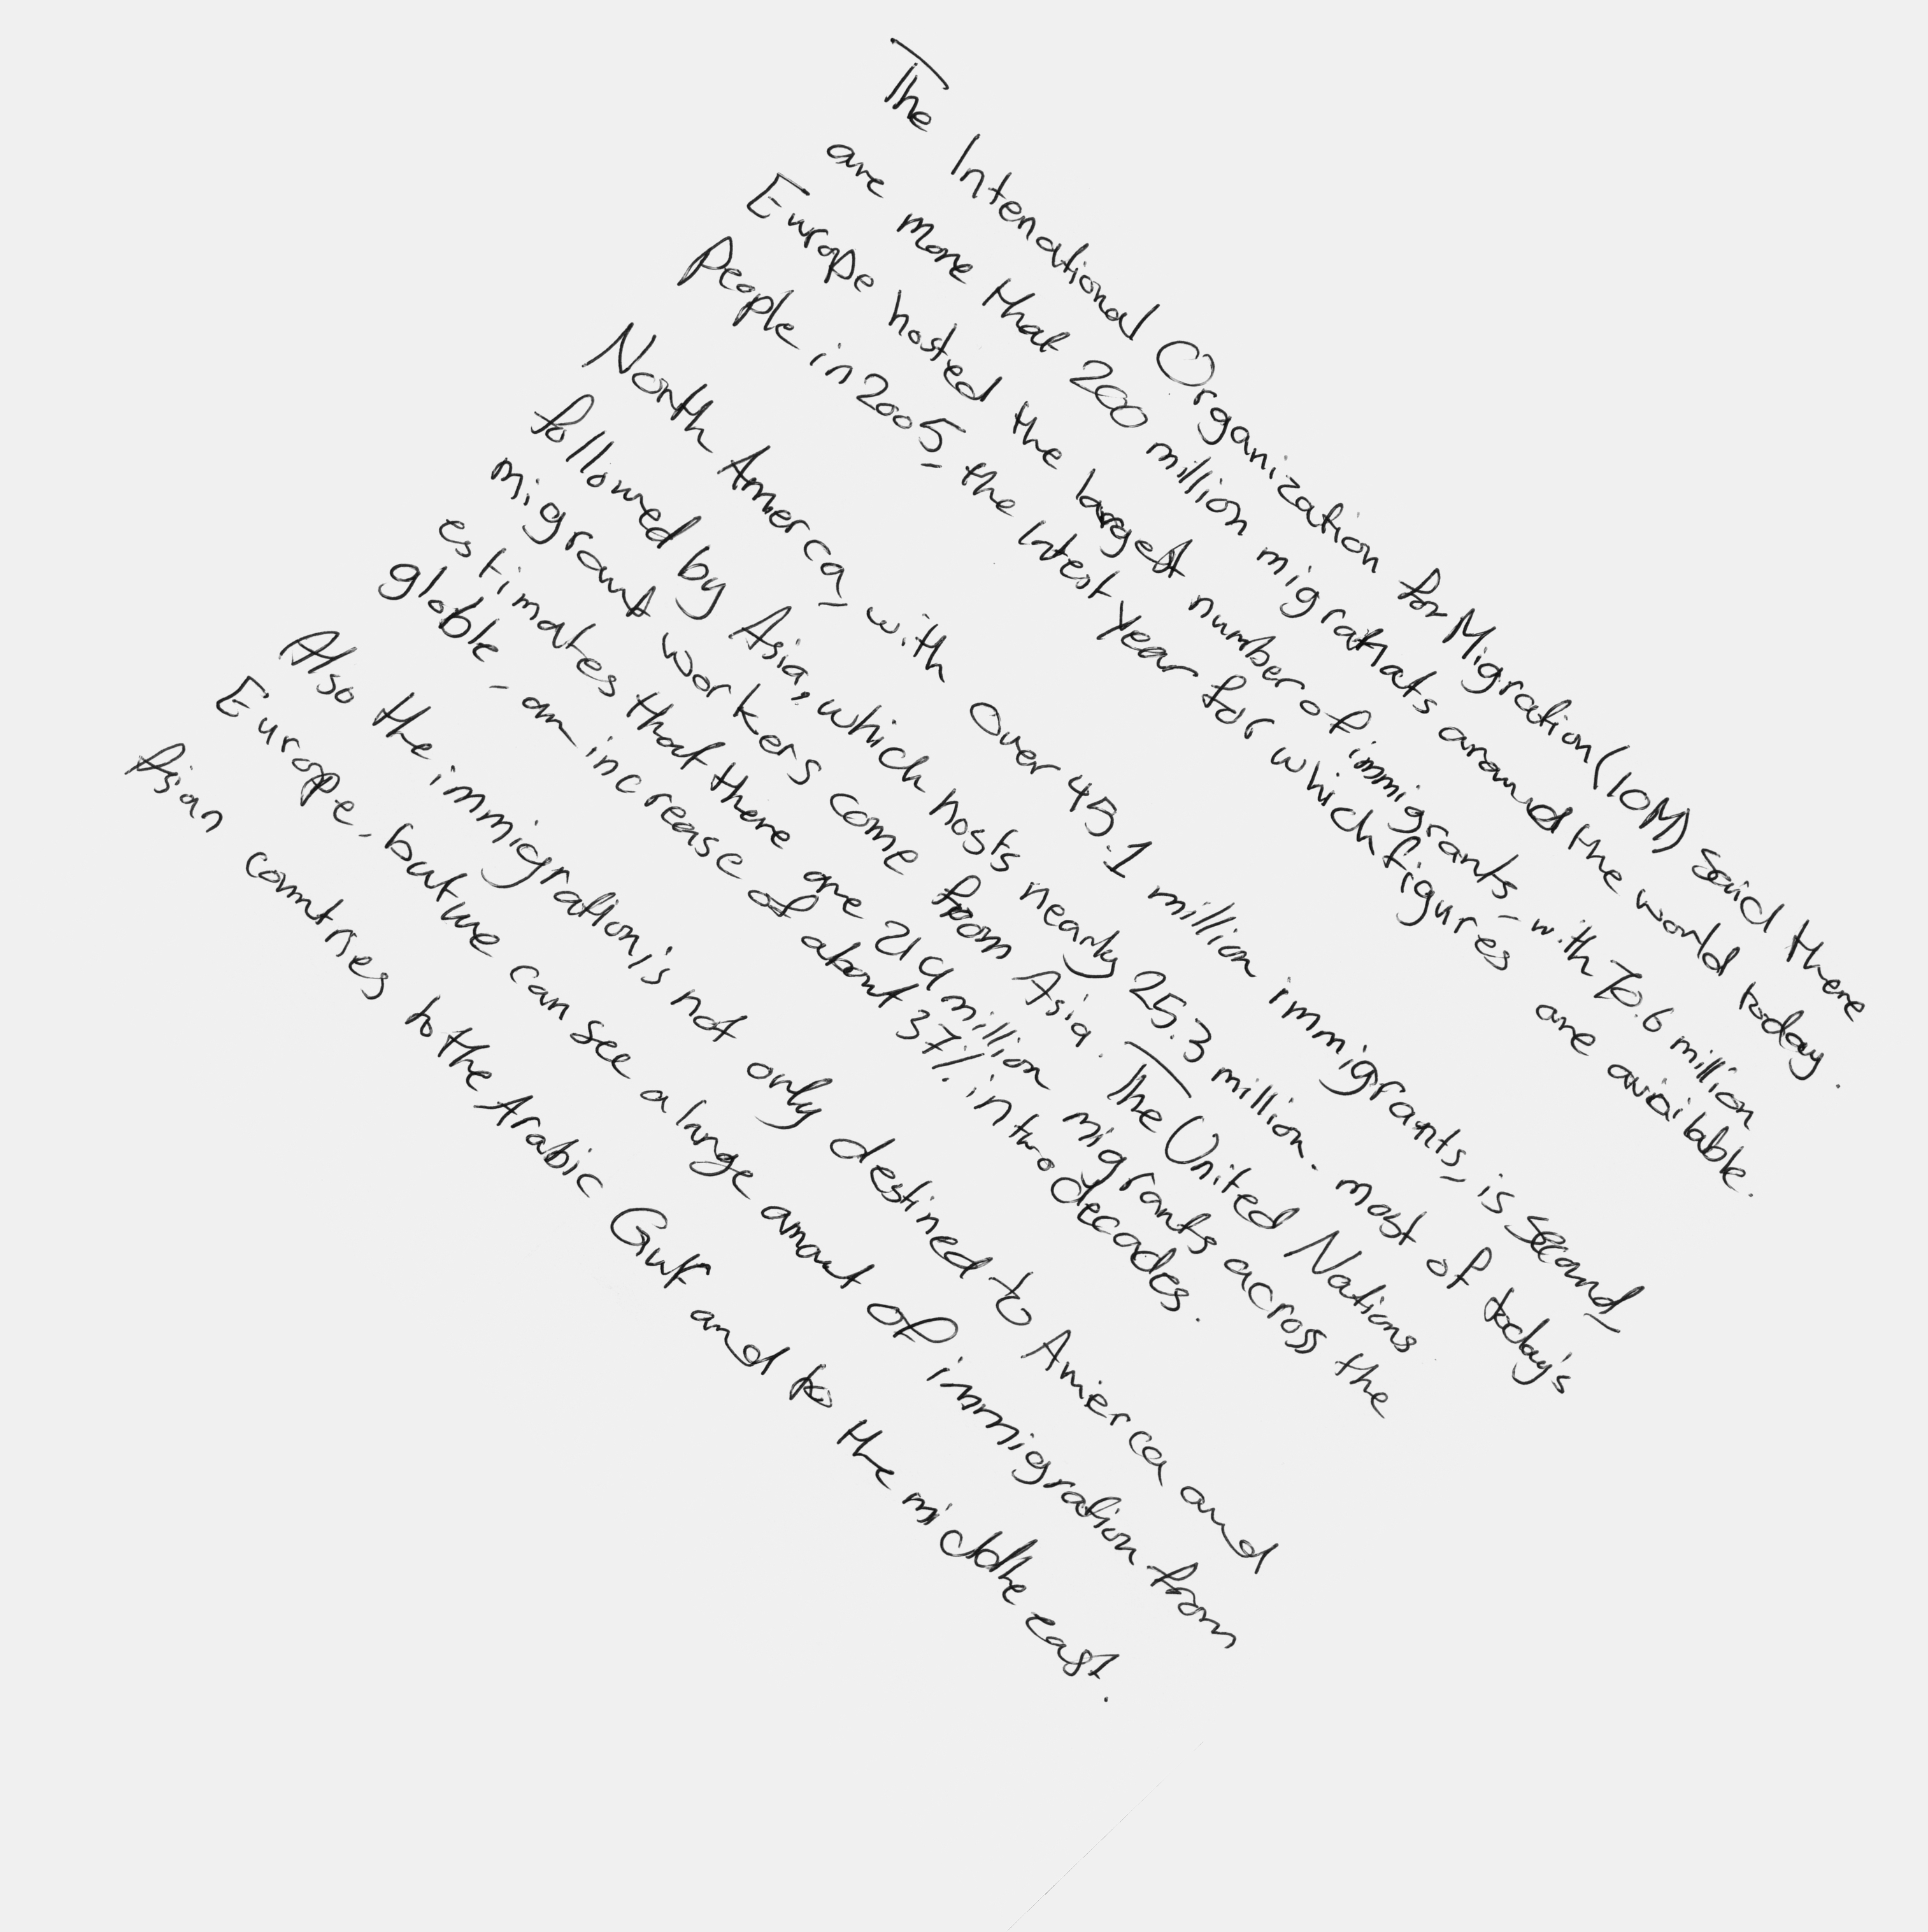 The Intenational Organization for Migration (IOM) said there
are more that 200 million migratnats around the world today.
Europe hosted the largest number of immigrants - with 70.6 million
People in 2005 - the latest year for which figures are available.
North Amerca - with over 45.1 million immigrants - is second -
followed by Asia, which hosts nearly 25.3 million. most of today's
migrant workers come from Asia. The United Nations
estimates that there are 214 million migrants across the
globle - an increase of about 37% in two decades.
Also the immigration is not only destined to Amerca and
Europe - but we can see a large amout of immigration from
Asian countries to the Arabic Gulf and to the middle east.